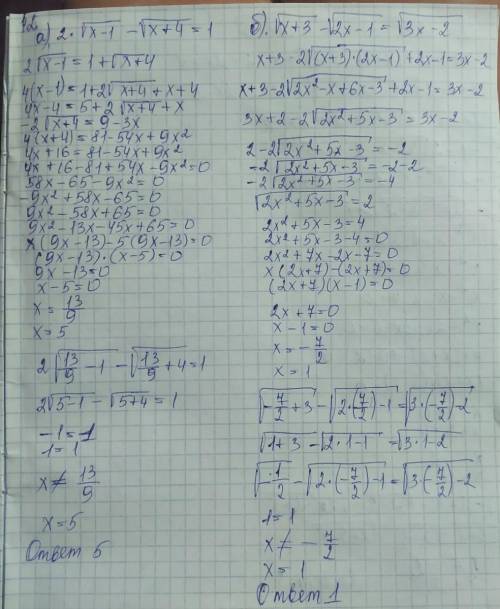 №2.
а) 2·√(x-1) - √(x+4) = 1
2√(x-1) = 1+√(x+4)
4(x-1)=1+2√(x+4)+x+4
4x-4=5+2√(x+4)+x
-2√(x+4)=9-3x
4(x+4)=81-54x+9x²
4x+16=81-54x+9x²
4x+16-81+54x-9x²=0
58x-65-9x²=0
-9x²+58x-65=0
9x²-58x+65=0
9x²-13x-45x+65=0
x(9x-13)-5(9x-13)=0
(9x-13)·(x-5)=0
9x-13=0
x-5=0
x=13/9
x=5
2√(13/9-1) - √(13/9+4)=1
2√(5-1) - √(5+4)=1
-1=1
1=1
x≠13/9
x=5
Ответ 5
б). √(x+3) - √(2x-1) = √(3x-2)
x+3-2√((x+3)·(2x-1))+2x-1=3x-2
x+3-2√(2x²-x+6x-3)+2x-1=3x-2
3x+2-2√(2x²+5x-3)=3x-2
2-2√(2x²+5x-3)=-2
-2√(2x²+5x-3)=-2-2
-2√(2x²+5x-3)=-4
√(2x²+5x-3)=2
2x²+5x-3=4
2x²+5x-3-4=0
2x²+7x-2x-7=0
x(2x+7)-(2x+7)=0
(2x+7)(x-1)=0
2x+7=0
x-1=0
x=-7/2
x=1
√(-7/2+3) - √(2·(7/2)-1)=√(3·(-7/2)-2)
√(1+3) - √(2·1-1) =√(3·1-2)
√(-1/2) - √(2·(-7/2)-1)=√(3·(-7/2)-2)
1=1
x≠-7/2
x=1
Ответ 1